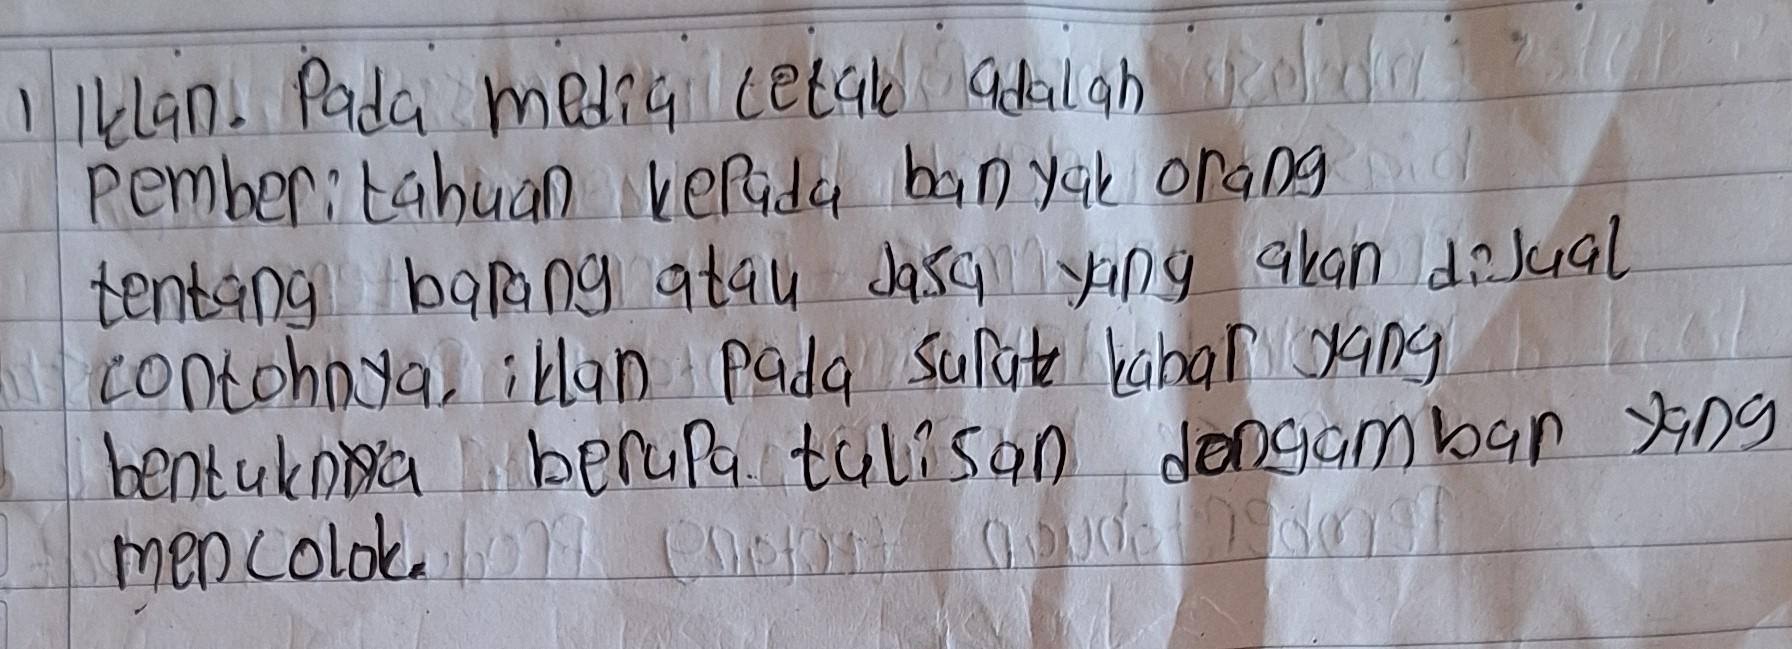 1 Iklan. Pada media cetak adalah
Pemberitahuan kepada banyak orang
tentang barang atau Jasa yang akan diJual
contohnya, iklan Pada surat kabar yang
bentuknya berupa. tulisan dengambar yang
mencolok.